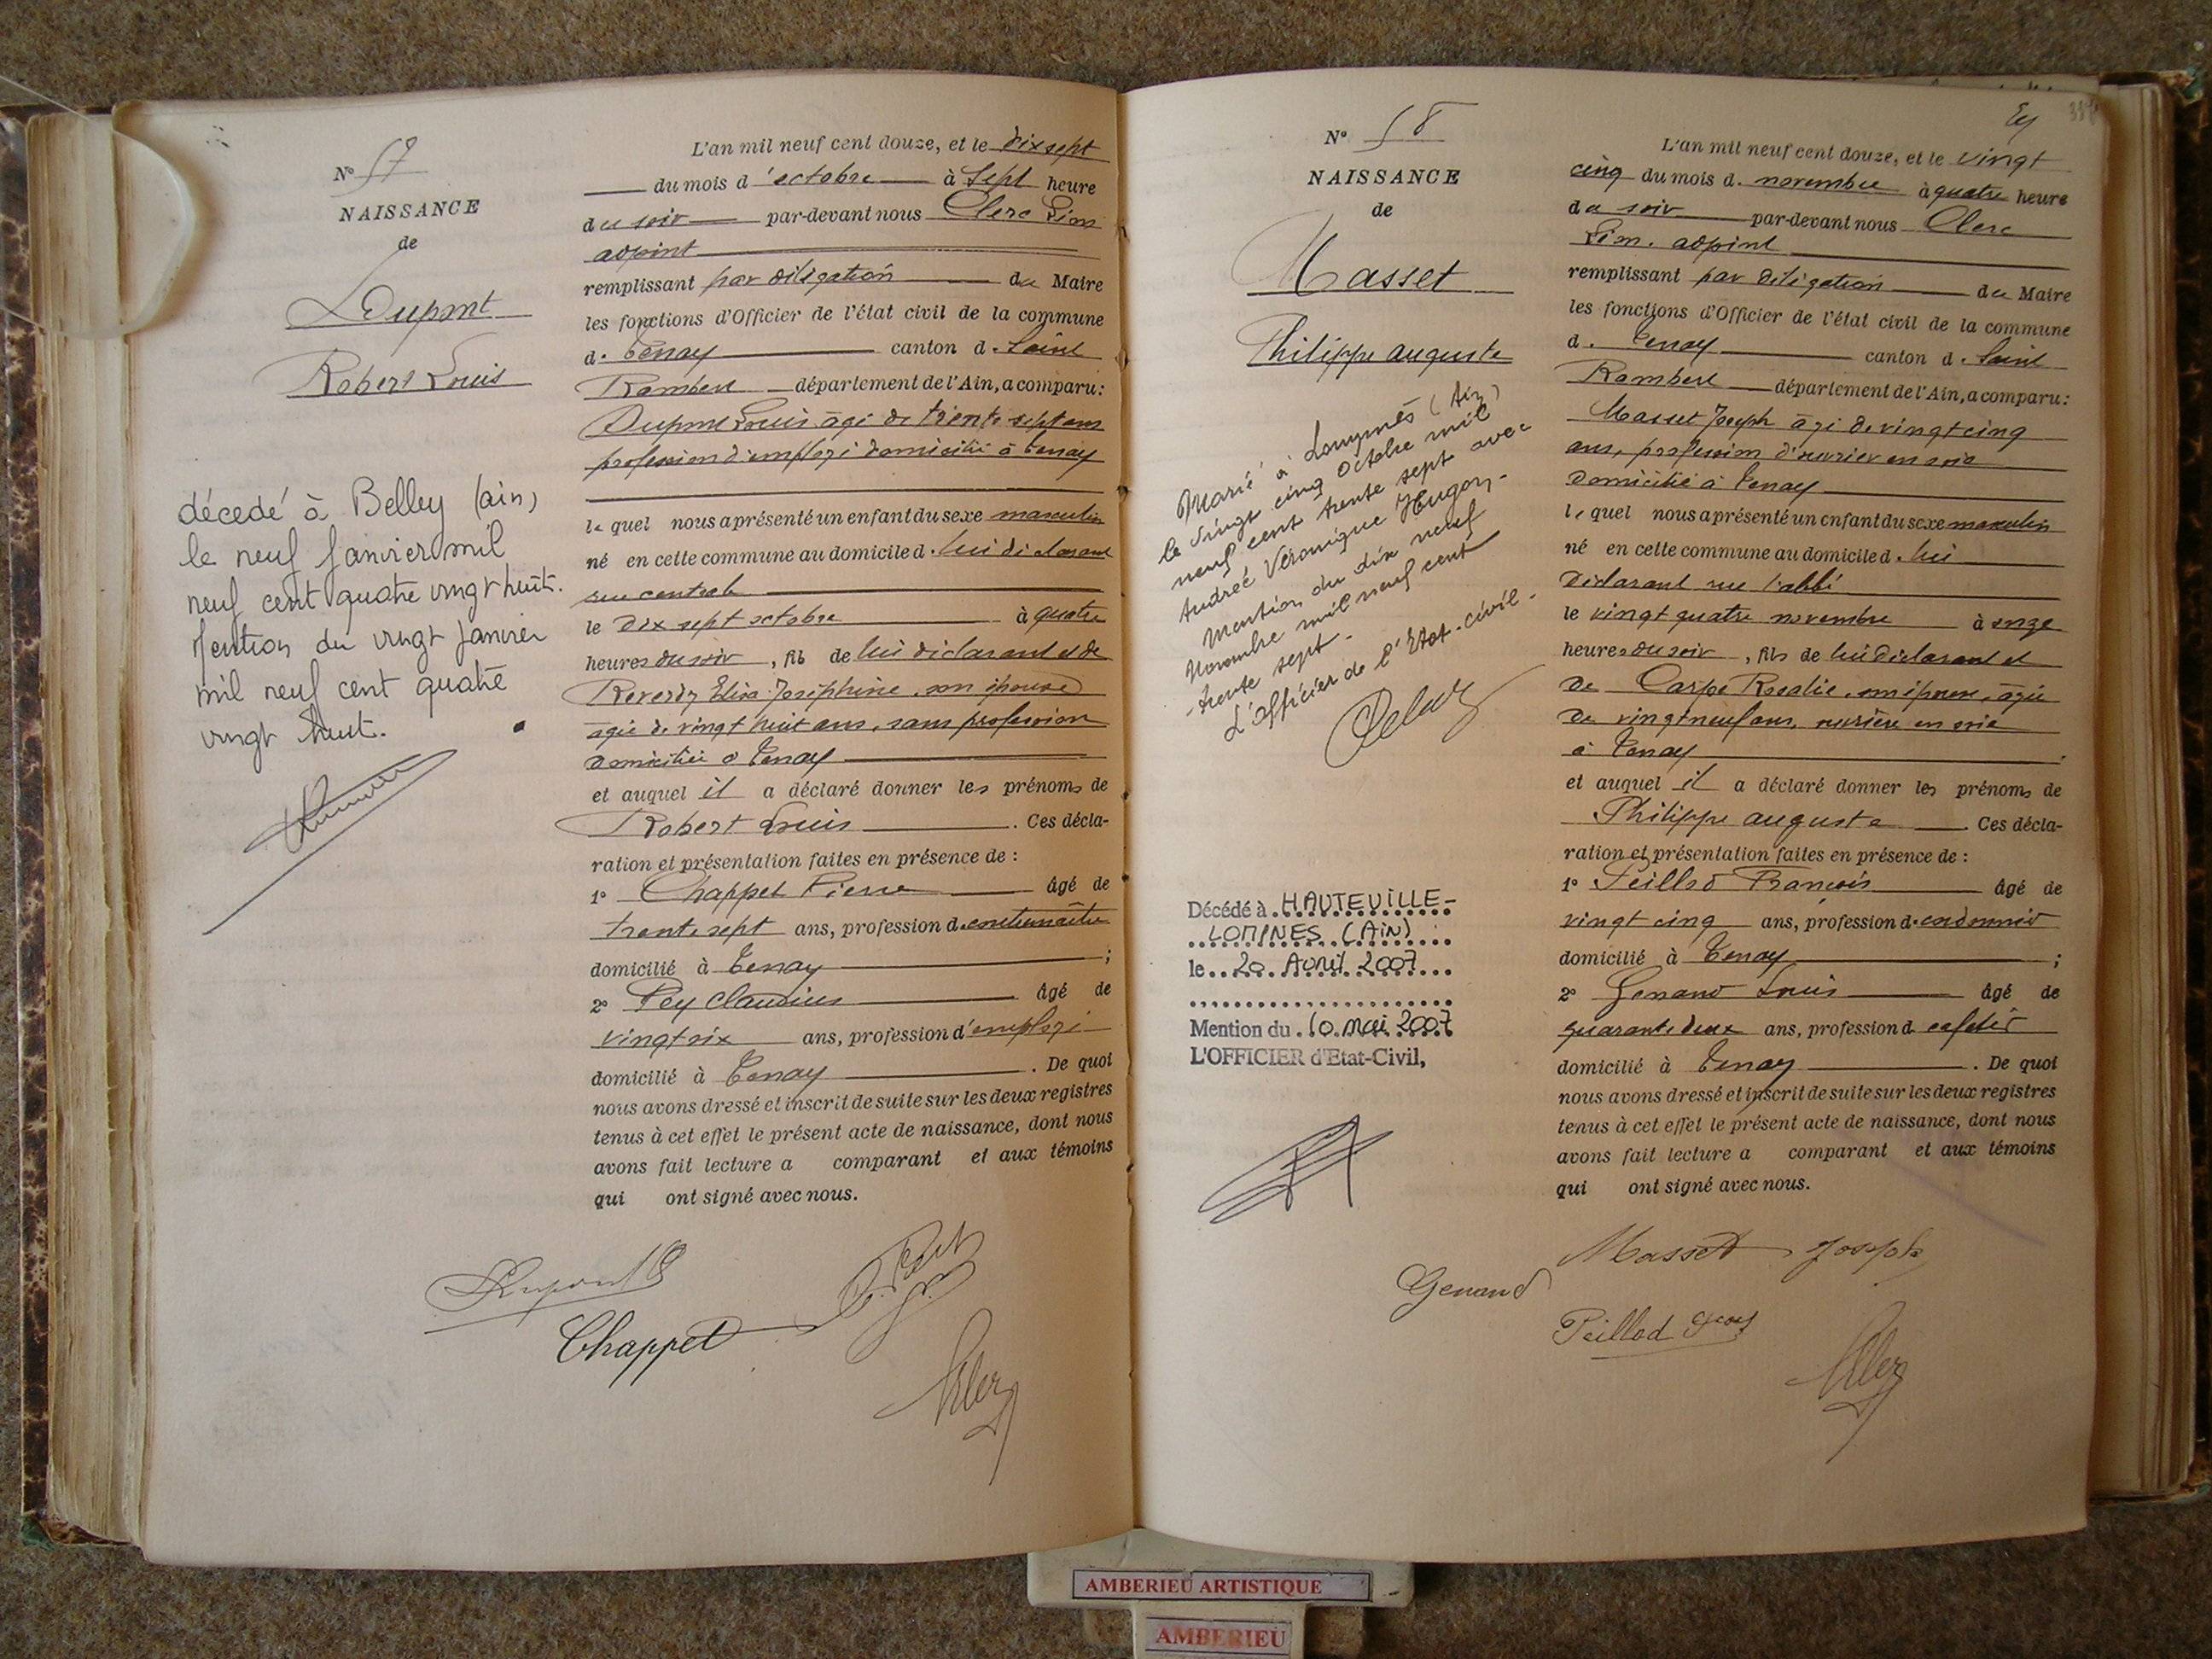 N° 57
NAISSANCE
de
Dupont
Robert Louis
décedé à Belley (ain)
le neuf Janvier mil
neuf cent quatre vingt huit.
Mention du vingt Janvier
mil neuf cent quatre
vingt huit.
L'an mil neuf cent douze, et le dix sept
du mois d'octobre à sept heure
du soir par-devant nous Clerc
adjoint
remplissant par délégation du Maire
les fonctions d'Officier de l'état civil de la commune
de Tenay canton de Saint
Rambert département de l'Ain, a comparu:
Dupont Louis âgé de trente sept ans
profession d'employé domicilié à Tenay
lequel nous a présenté un enfant du sexe masculin
né en cette commune au domicile de lui déclarant
rue centrale
le dix sept octobre à quatre
heures du soir, fils de lui déclarant et de
Reverdy Elisa Joséphine, son épouse
âgée de vingt huit ans, sans profession
domiciliée à Tenay
et auquel il a déclaré donner les prénoms de
Robert Louis. Ces décla-
ration et présentation faites en présence de :
1° Chappet Pierre âgé de
trente sept ans, profession de contremaître
domicilié à Tenay ;
2° Pey Claudius âgé de
vingt six ans, profession d'employé
domicilié à Tenay. De quoi
nous avons dressé et inscrit de suite sur les deux registres
tenus à cet effet le présent acte de naissance, dont nous
avons fait lecture a comparant et aux témoins
qui ont signé avec nous.
Dupont
Chappet
Clerc
N° 58
NAISSANCE
de
Masset
Philippe auguste
Marié à (Ain)
le vingt cinq octobre mil
neuf cent trente sept avec
Andreé Véronique Hugon.
Mention du dix neuf
Novembre mil neuf cent
trente sept.
L'officier de l'Etat-civil.
Décédé à HAUTEVILLE-
LOMPNES (AiN)
le 20 Avril 2007
Mention du 10 mai 2007
L'OFFICIER d'Etat-Civil,
L'an mil neuf cent douze, et le vingt
cinq du mois de novembre à quatre heure
du soir par-devant nous Clerc
adjoint
remplissant par délégation du Maire
les fonctions d'Officier de l'état civil de la commune
de Tenay canton de Saint
Rambert département de l'Ain, a comparu:
Masset Joseph âgé de vingt cinq
ans, profession d'ouvrier en soie
domicilié à Tenay
lequel nous a présenté un enfant du sexe masculin
né en cette commune au domicile de lui
déclarant rue l'abbé
le vingt quatre novembre à onze
heures du soir, fils de lui déclarant et
de Carpe Rosalie, son épouse, âgée
de vingt neuf ans, ouvrière en soie
à Tenay
et auquel il a déclaré donner les prénoms de
Philippe auguste. Ces décla-
ration et présentation faites en présence de :
1° Peillod François âgé de
vingt cinq ans, profession de cordonnier
domicilié à Tenay ;
2° Genand Louis âgé de
quarante deux ans, profession d cafetier
domicilié à Tenay. De quoi
nous avons dressé et inscrit de suite sur les deux registres
tenus à cet effet le présent acte de naissance, dont nous
avons fait lecture a comparant et aux témoins
qui ont signé avec nous.
Masset Joseph
Genand
Peillod
Clerc
AMBERIEU ARTISTIQUE
AMBERIEU